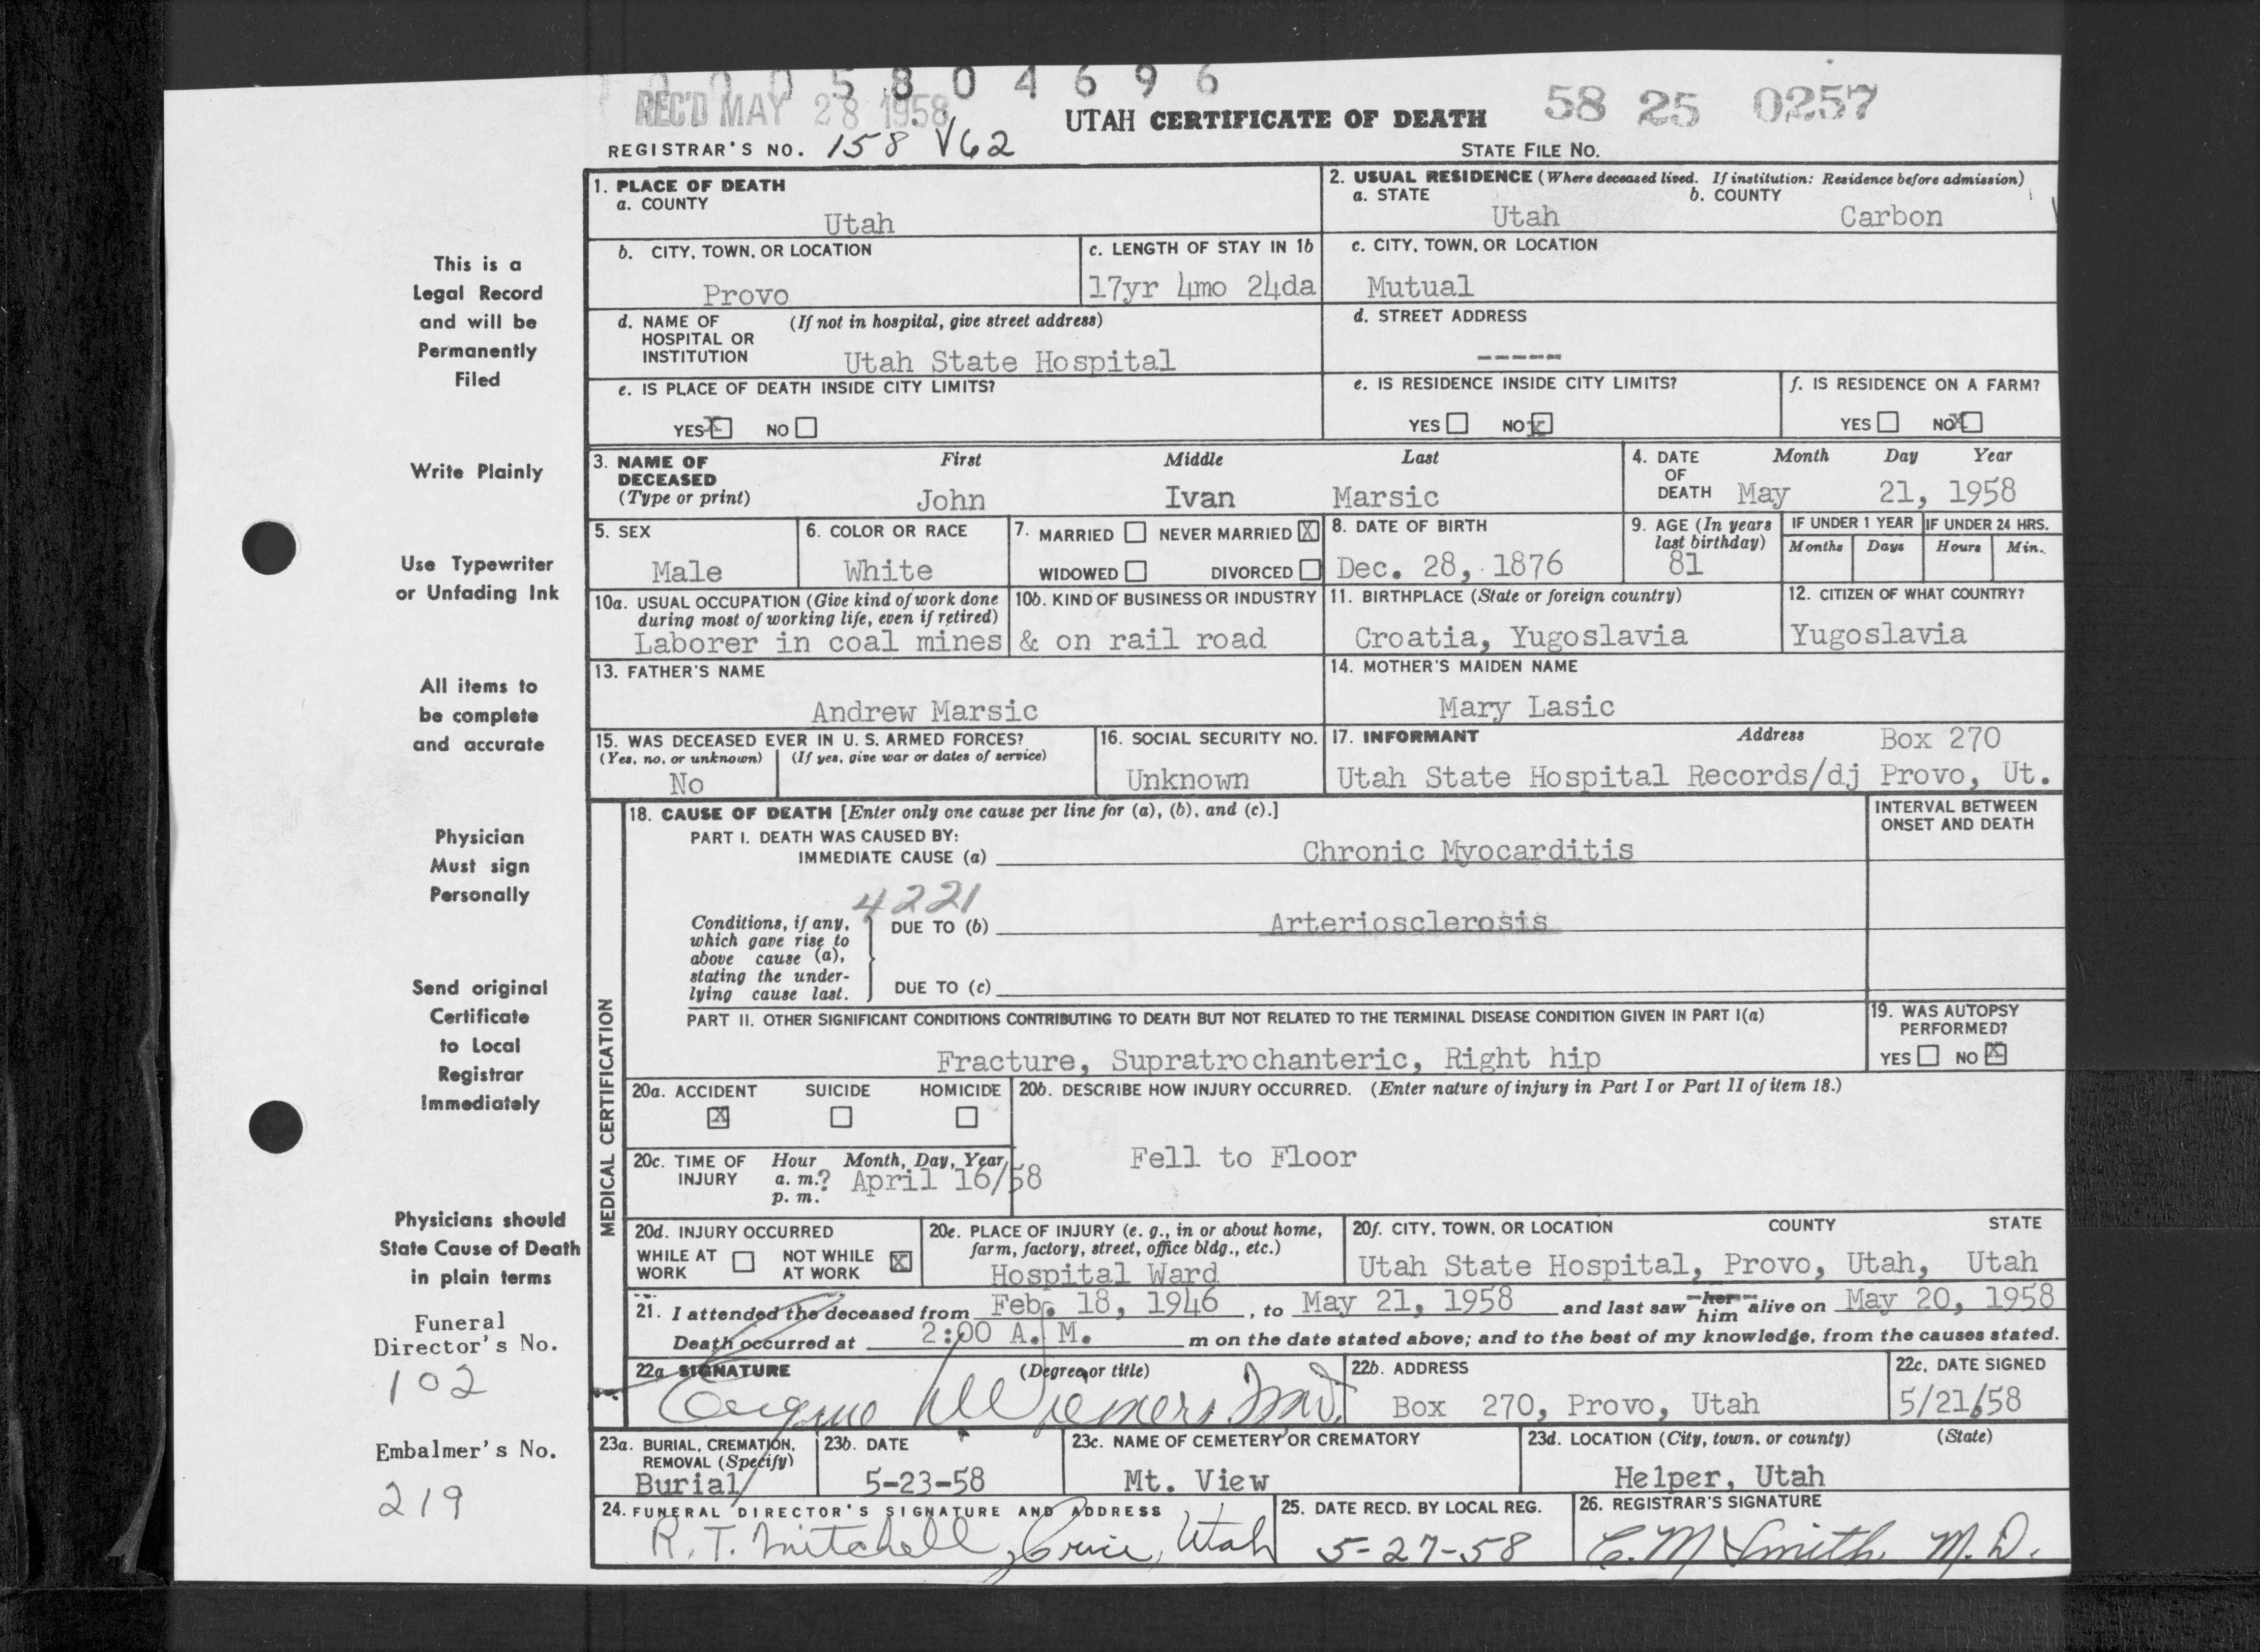 0005804696
REC'D MAY 28 1958
58 25 0257
UTAH CERTIFICATE OF DEATH
REGISTRAR'S NO. 158 V62
STATE FILE NO.
This is a
Legal Record
and will be
Permanently
Filed
Write Plainly
Use Typewriter
or Unfading Ink
All items to
be complete
and accurate
Physician
Must sign
Personally
Send original
Certificate
to Local
Registrar
Immediately
Physicians should
State Cause of Death
in plain terms
Funeral
Director's No.
102
Embalmer's No.
219
1. PLACE OF DEATH
a. COUNTY
Utah
2. USUAL RESIDENCE (Where deceased lived. If institution: Residence before admission)
a. STATE b. COUNTY
Utah Carbon
b. CITY, TOWN, OR LOCATION
Provo
c. LENGTH OF STAY IN 1b
17yr 4mo 24da
c. CITY, TOWN, OR LOCATION
Mutual
d. NAME OF (If not in hospital, give street address)
HOSPITAL OR
INSTITUTION Utah State Hospital
d. STREET ADDRESS
-----
e. IS PLACE OF DEATH INSIDE CITY LIMITS?
YES X NO
e. IS RESIDENCE INSIDE CITY LIMITS?
YES NO X
f. IS RESIDENCE ON A FARM?
YES NO X
3. NAME OF First Middle Last
DECEASED
(Type or print) John Ivan Marsic
4. DATE Month Day Year
OF
DEATH May 21, 1958
5. SEX
Male
6. COLOR OR RACE
White
7. MARRIED NEVER MARRIED X
WIDOWED DIVORCED
8. DATE OF BIRTH
Dec. 28, 1876
9. AGE (In years
last birthday)
81
IF UNDER 1 YEAR IF UNDER 24 HRS.
Months Days Hours Min.
10a. USUAL OCCUPATION (Give kind of work done
during most of working life, even if retired)
10b. KIND OF BUSINESS OR INDUSTRY
Laborer in coal mines & on rail road
11. BIRTHPLACE (State or foreign country)
Croatia, Yugoslavia
12. CITIZEN OF WHAT COUNTRY?
Yugoslavia
13. FATHER'S NAME
Andrew Marsic
14. MOTHER'S MAIDEN NAME
Mary Lasic
15. WAS DECEASED EVER IN U. S. ARMED FORCES?
(Yes, no, or unknown) (If yes, give war or dates of service)
No
16. SOCIAL SECURITY NO.
Unknown
17. INFORMANT Address Box 270
Utah State Hospital Records/dj Provo, Ut.
MEDICAL CERTIFICATION
18. CAUSE OF DEATH [Enter only one cause per line for (a), (b), and (c).]
INTERVAL BETWEEN
ONSET AND DEATH
PART I. DEATH WAS CAUSED BY:
IMMEDIATE CAUSE (a) Chronic Myocarditis
4221
Conditions, if any,
which gave rise to
above cause (a),
stating the under-
lying cause last.
DUE TO (b) Arteriosclerosis
DUE TO (c)
PART II. OTHER SIGNIFICANT CONDITIONS CONTRIBUTING TO DEATH BUT NOT RELATED TO THE TERMINAL DISEASE CONDITION GIVEN IN PART I(a)
Fracture, Supratrochanteric, Right hip
19. WAS AUTOPSY
PERFORMED?
YES NO X
20a. ACCIDENT SUICIDE HOMICIDE
X
20b. DESCRIBE HOW INJURY OCCURRED. (Enter nature of injury in Part I or Part II of item 18.)
Fell to Floor
20c. TIME OF Hour Month, Day, Year
INJURY a. m.? April 16/58
p. m.
20d. INJURY OCCURRED
WHILE AT NOT WHILE X
WORK AT WORK
20e. PLACE OF INJURY (e. g., in or about home,
farm, factory, street, office bldg., etc.)
Hospital Ward
20f. CITY, TOWN, OR LOCATION COUNTY STATE
Utah State Hospital, Provo, Utah, Utah
21. I attended the deceased from Feb. 18, 1946, to May 21, 1958 and last saw her him alive on May 20, 1958
Death occurred at 2:00 A. M. m on the date stated above; and to the best of my knowledge, from the causes stated.
22a SIGNATURE (Degree or title)
Eugene Wiemers M.D.
22b. ADDRESS
Box 270, Provo, Utah
22c. DATE SIGNED
5/21/58
23a. BURIAL, CREMATION,
REMOVAL (Specify)
Burial
23b. DATE
5-23-58
23c. NAME OF CEMETERY OR CREMATORY
Mt. View
23d. LOCATION (City, town, or county) (State)
Helper, Utah
24. FUNERAL DIRECTOR'S SIGNATURE AND ADDRESS
R. T. Mitchell, Price, Utah
25. DATE RECD. BY LOCAL REG.
5-27-58
26. REGISTRAR'S SIGNATURE
C. M Smith M.D.